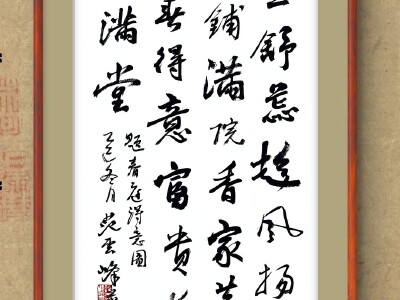 舒蕊趁风扬
铺满院香家
得意富贵
满堂
题春庭得意图
冬月 云峰